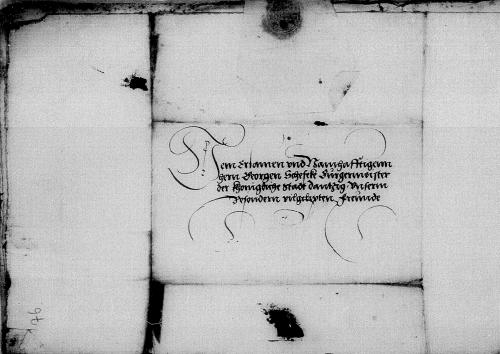 Dem Erbamen vnd Namhafftigenn
hern Georgen Scheffke Burgermeister
der Königliche Stadt dantzig vnserm
besondern vilgelipten freunde
76